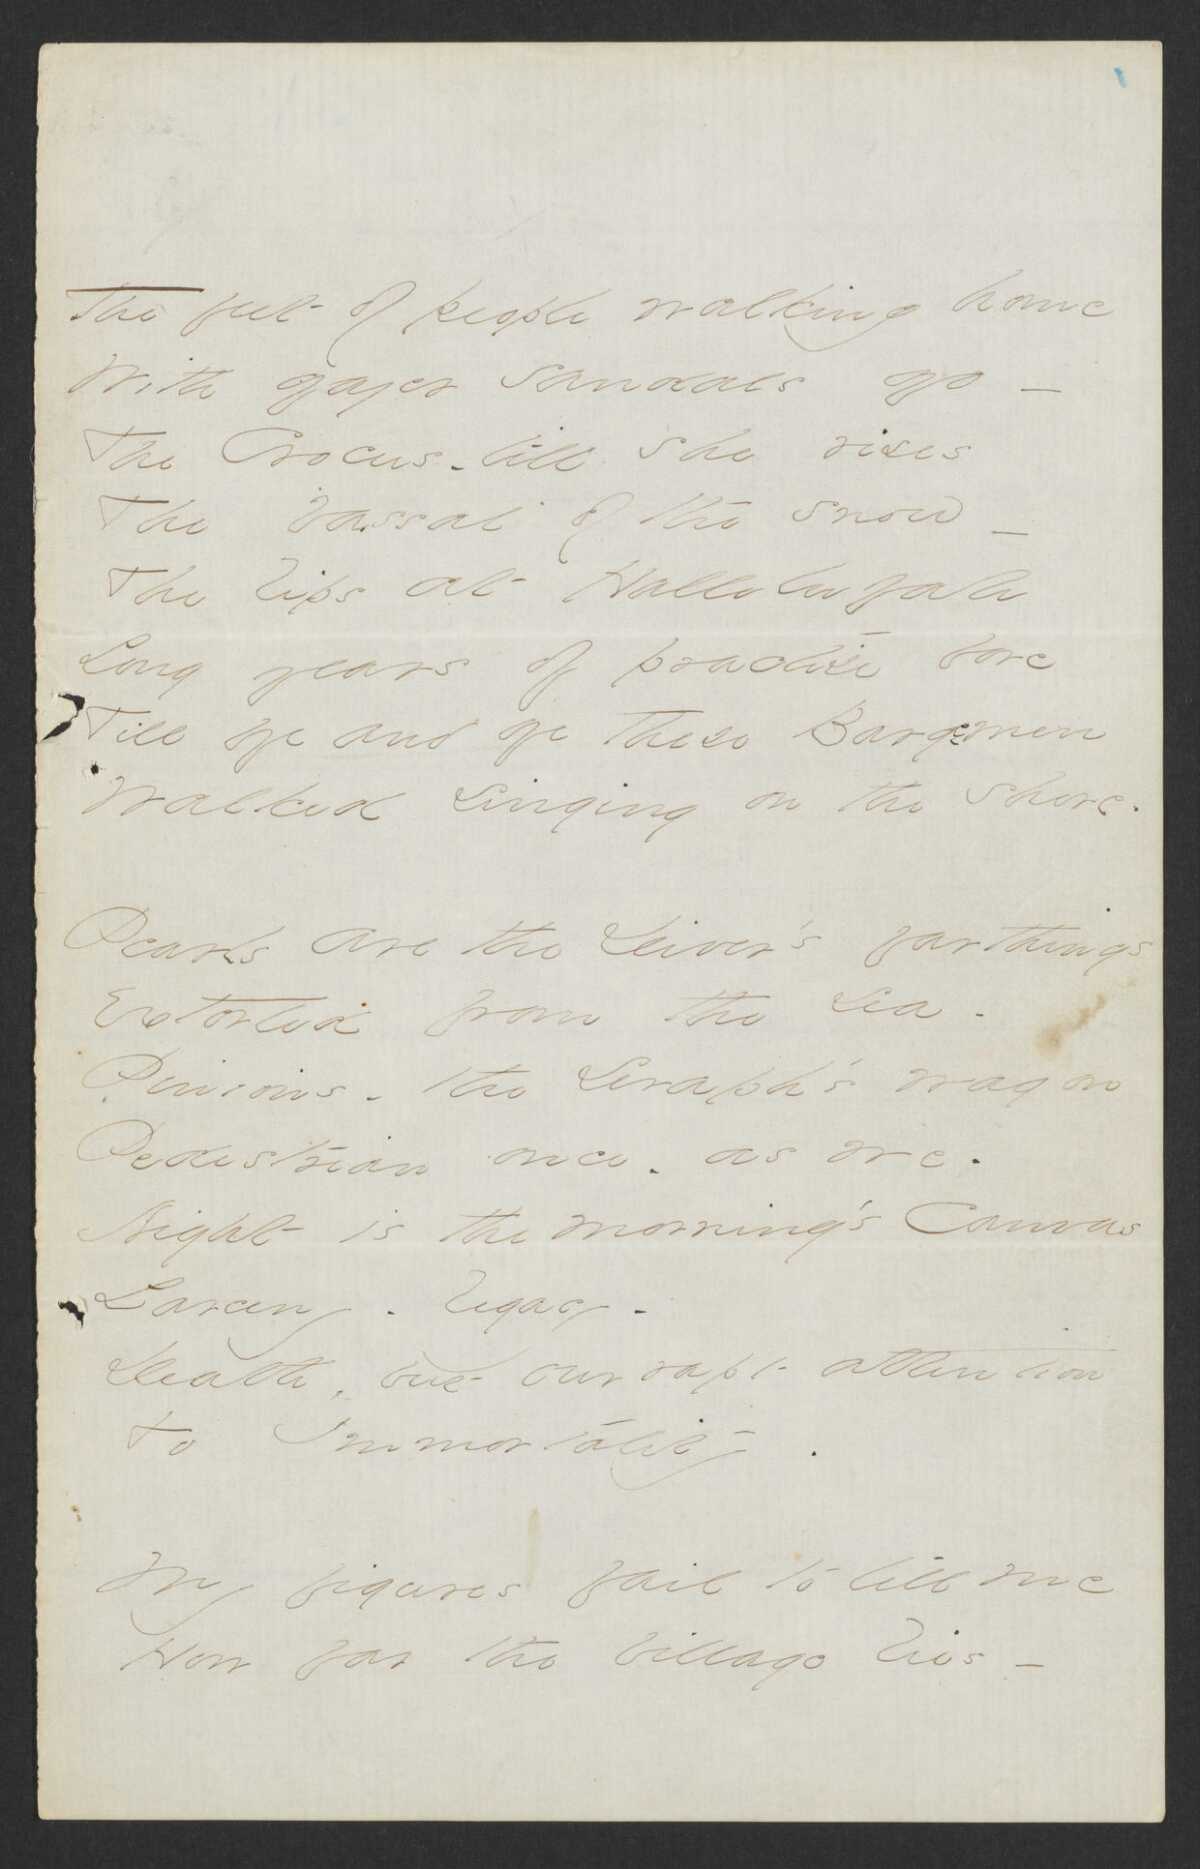 The feet of people walking home
With gayer sandals go —
The Crocus - till she rises
The Vassal of the snow —
The lips at Hallelujah
Long years of practise bore
Till bye and bye these Bargemen
Walked singing on the shore.
Pearls are the Diver's farthings
Extorted from the Sea -
Pinions - the Seraph's wagon
Pedestrian once - as we -
Night is the morning's Canvas
Larceny - legacy -
Death, but our rapt attention
to Immortality.
My figures fail to tell me
How far the Village lies —